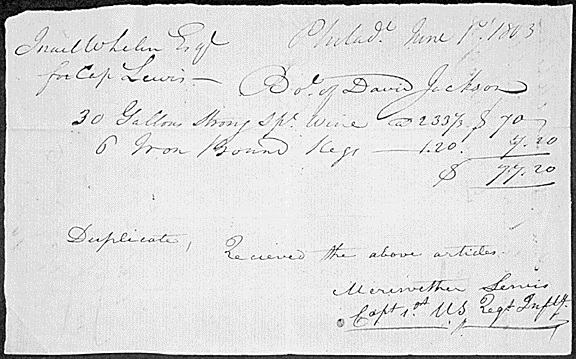 Philad. June 1st 1803
Israel Whelen Esqr
for Cap Lewis —
Bot. of David Jackson
30 Gallons Strong Spt. Wine @ 233⅓ $ 70
6 Iron Bound Kegs — 1.20. 7.20
$ 77.20
Duplicate, Recieved the above articles.
Meriwether Lewis
Capt 1st US Regt Infty.